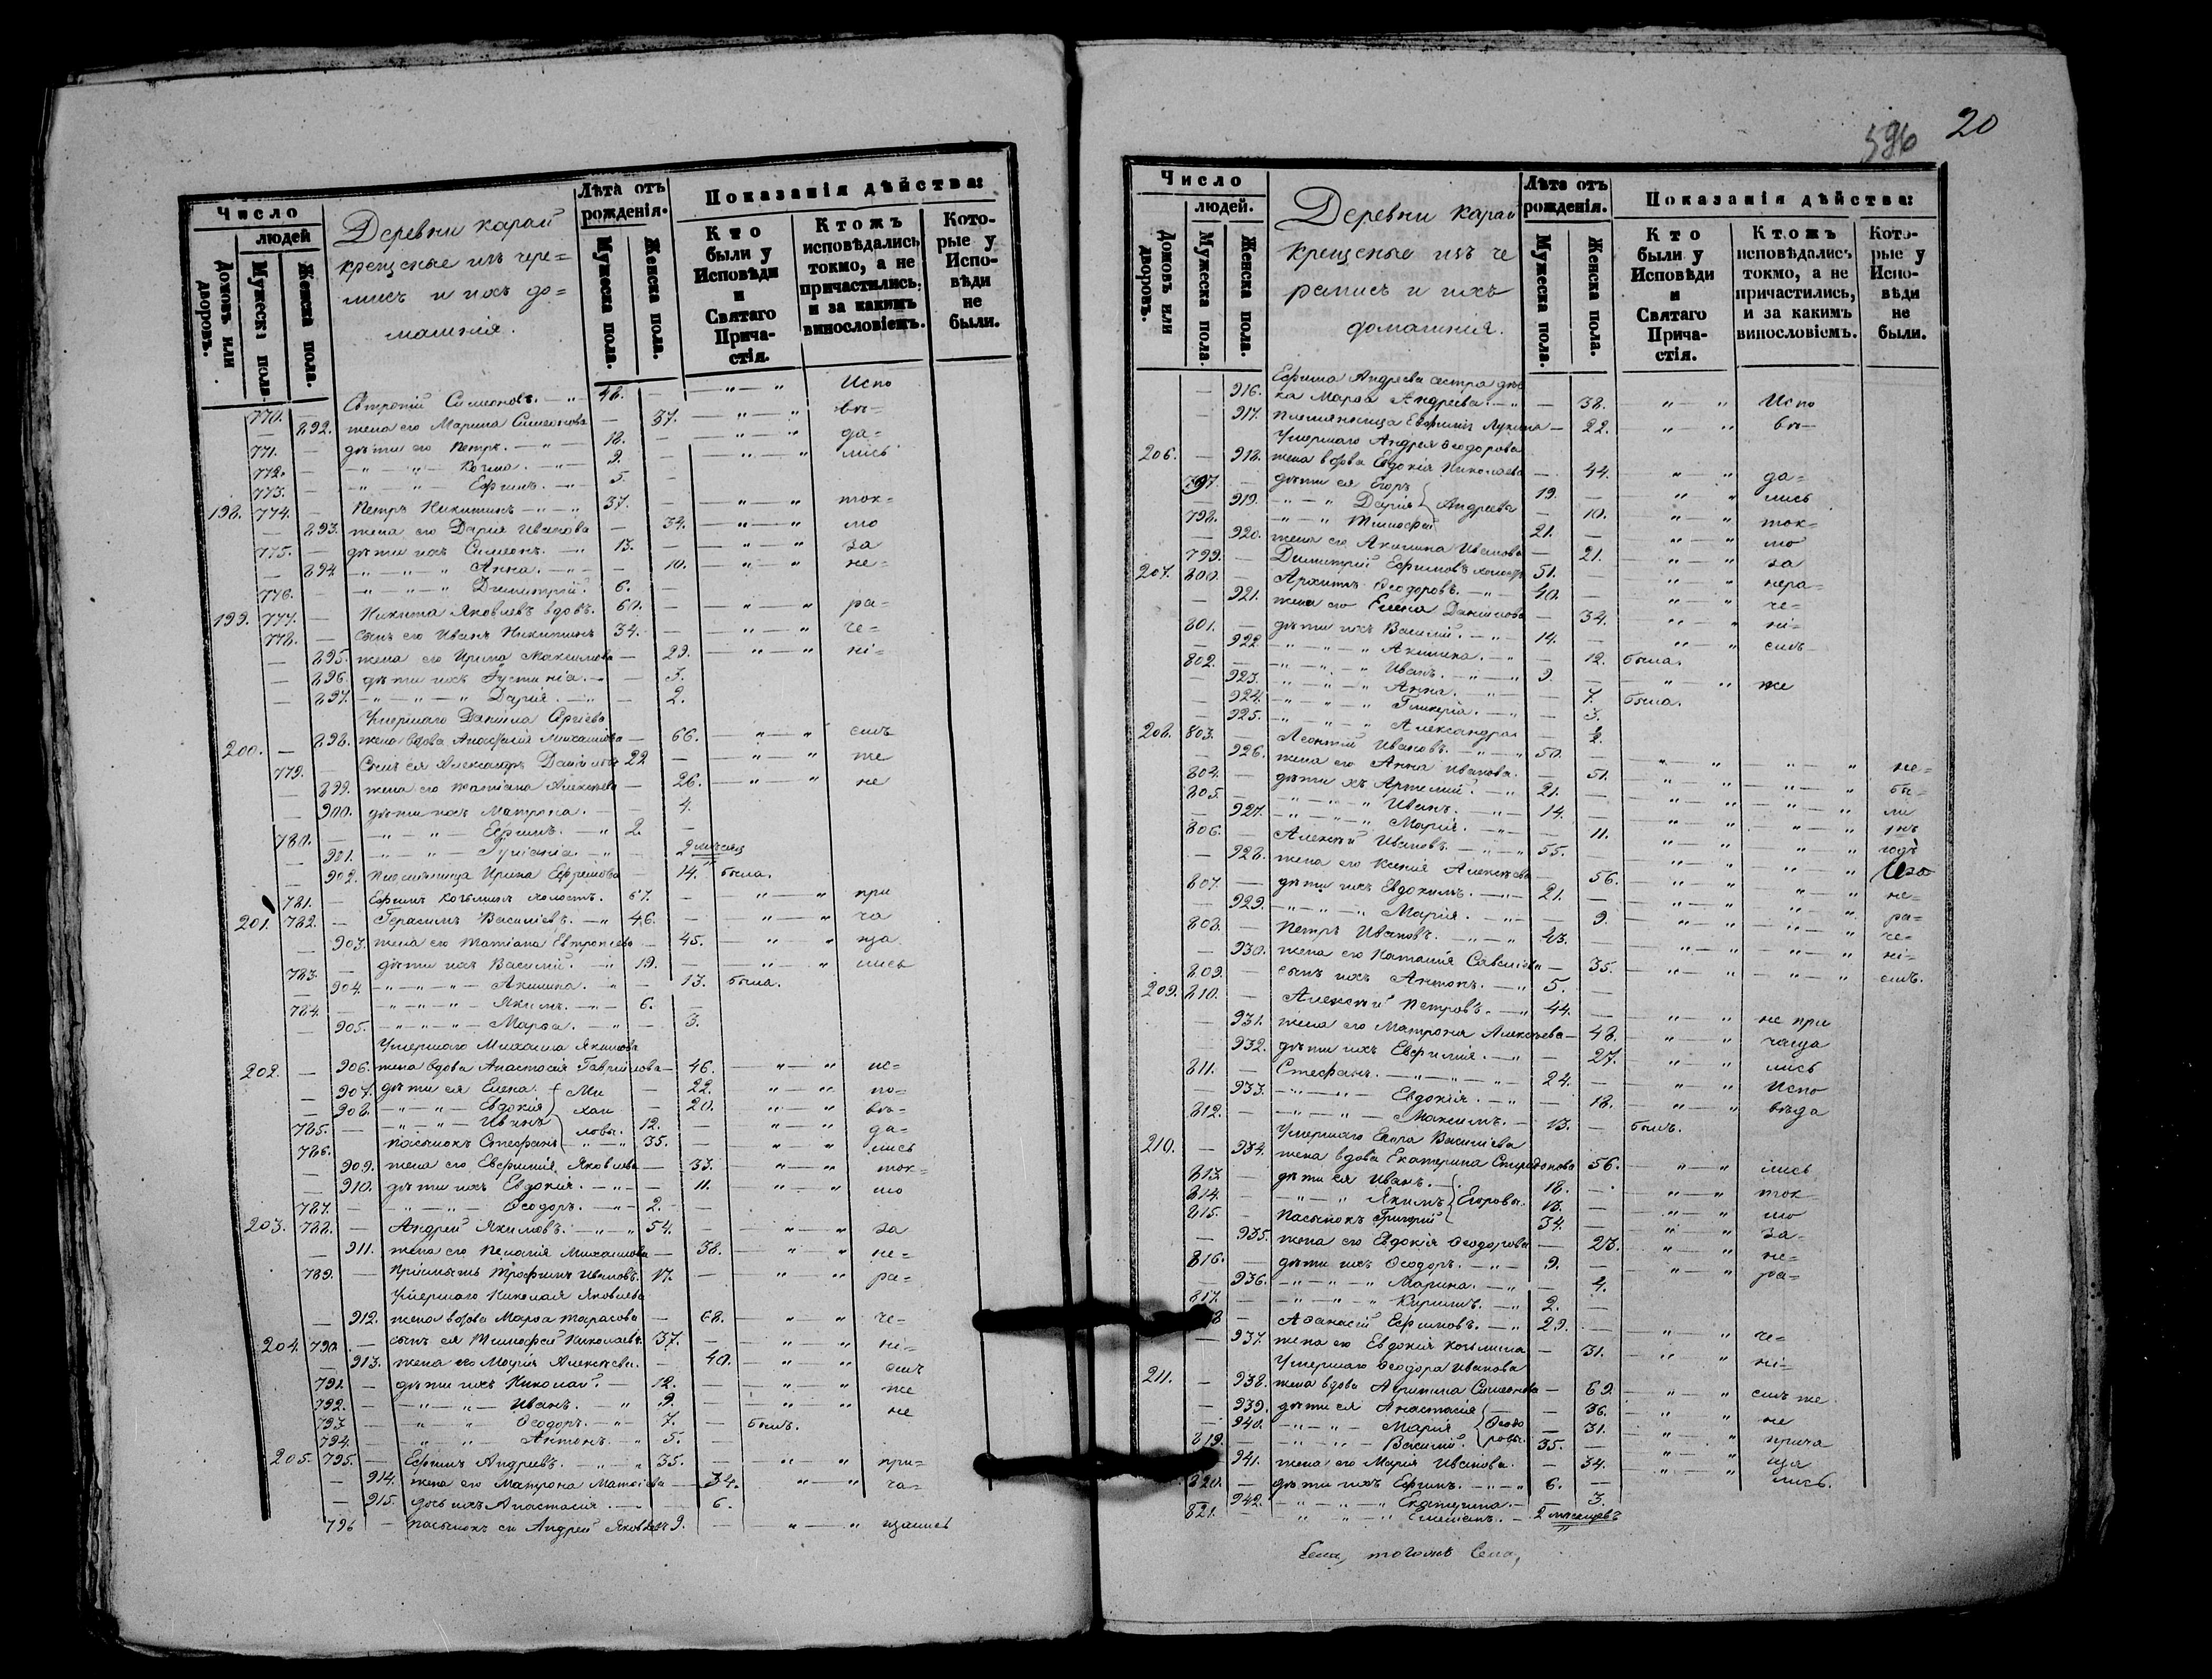 Число
людей
Домовъ или дворовъ.
Мужеска пола.
Женска пола.
Деревни карай
крещеные изъ чере=
мисъ и ихъ до=
машнія.
Лѣта отъ рожденія.
Мужеска пола.
Женска пола.
Показанія дѣйства:
Кто были у Исповѣди и Святаго Прича-стія.
Ктожъ исповѣдались токмо, а не причастились, и за какимъ винословіемъ.
Кото-рые у Испо-вѣди не были.
770. — Евтропій Симеоновъ. 48. — Испо
— 892. жена его Марина Симеонова — 37. вѣ=
771. — дѣти ихъ Петръ. 12. — да=
772. — Козма. 9. — лись
773. — Ефимъ. 5. —
198. 774. — Петръ Никитинъ 37. — ток=
— 893. жена его Дарія Иванова — 34. мо
775. — дѣти ихъ Симеонъ. 13. — за
— 894. Анна. — 10. не=
776. — Димитрій. 6. —
199. 777. — Никита Яковлевъ вдовъ. 60. — ра=
778. — сынъ его Иванъ Никитинъ 34. — че=
— 895. жена его Ирина Максимова — 29. ні=
— 896. дѣти ихъ Іустинія. — 3.
— 897. Дарія. — 2.
Умершаго Даніила Сергіева
200. — 898. жена вдова Анастасія Михаилова — 66. емъ
779. — Сынъ ея Александръ Даніиловъ 22 — же
— 899. жена его Татіана Алексѣева — 26. не
— 900. дѣти ихъ Матрона. — 4.
780. — Ефимъ. 2. —
— 901. Іуліанія — 9 мѣсяц
— 902. племянница Ирина Ефремова — 14. была.
781. — Ефимъ Козьминъ холостъ. 67. — при
201. 782. — Герасимъ Василіевъ. 46. — ча
— 903. жена его Татіана Евтропіева — 45. ща
783. — дѣти ихъ Василій. 19. — лись
— 904. Акилина. — 13. была.
784. — Якимъ. 6. —
— 905. Марѳа. — 3.
Умершаго Михаила Якимова
202. — 906. жена вдова Анастасія Гавріилова — 46. ис=
— 907. дѣти ея Елена. Ми — 22. по=
— 908. Евдокія хаи — 20. вѣ=
785. — Иванъ ловы. 12. — да=
786. — пасынокъ Стефанъ 35. — лись
— 909. жена его Евфимія Яковлева — 33. ток=
— 910. дѣти ихъ Евдокія. — 11. мо
787. — Ѳеодоръ. 2. —
203. 788. — Андрей Якимовъ. 54. — за
— 911. жена его Пелагія Михаилова — 38. не=
789. — Пріимышъ Трофимъ Ивановъ. 17. — ра=
Умершаго Николая Яковлева
— 912. жена вдова Марѳа Тарасова — 68. че=
204. 790. — сынъ ея Тимофей Николаевъ. 37. — ні=
— 913. жена его Марія Алексѣева. — 40. емъ
791. — дѣти ихъ Николай. 12. — же
792. — Иванъ. 9. — не
793. — Ѳеодоръ. 7. — былъ.
794. — Антонъ. 5. —
205. 795. — Ефимъ Андреевъ. 35. — при=
— 914. жена его Матрона Матѳіева — 34. ча=
— 915. дочь ихъ Анастасія. — 6.
796 — пасынокъ ея Андрей Яковлевъ 9. — щались
596 20
Число
людей.
Домовъ или дворовъ.
Мужеска пола
Женска пола.
Деревни карай
крещеные изъ че
ремисъ и ихъ
домашнія.
Лѣта отъ рожденія.
Мужеска пола.
Женска пола.
Показанія дѣйства:
Кто были у Исповѣди и Святаго Прича-стія.
Ктожъ исповѣдались токмо, а не причастились, и за какимъ винословіемъ.
Кото-рые у Испо-вѣди не были.
Ефима Андреева сестра дѣв
— 916. ка Марѳа Андреева. — 38. Испо
— 917. племянница Евфимія Лукина — 22. вѣ—
Умершаго Андрея Ѳеодорова
206. — 918. жена вдова Евдокія Николаева — 44. да=
797. — дѣти ея Егоръ 19. — лись
— 919. Дарія Андреева — 10. ток=
798. — Тимофей 21. — мо
— 920. жена его Акилина Иванова — 21. за
799. — Димитрій Ефимовъ холостъ 51. — нера=
207. 800. — Архипъ Ѳеодоровъ. 40. — че=
— 921. жена его Елена Даніилова — 34. ні=
801. — дѣти ихъ Василій. 14. — емъ
— 922. Акилина. — 12. была.
802. — Иванъ. 9. — же
— 923. Анна. — 7. была.
— 924. Гликерія. — 3.
— 925. Александра — 2.
208. 803. — Леонтій Ивановъ. 50. — не=
— 926. жена его Анна Иванова. — 51. бы=
804. — дѣти ихъ Артемій. 21. — ли
805. — Иванъ. 14. —
— 927. Марія. — 11. годъ
806. — Алексѣй Ивановъ. 55. —
— 928. жена его Ксенія Алексѣева — 56. не=
807. — дѣти ихъ Евдокимъ. 21. — ра=
— 929. Марія. — 9. че=
808. — Петръ Ивановъ. 43. — ні=
— 930. жена его Наталія Савеліева — 35. емъ.
809. — сынъ ихъ Антонъ. 5. —
209. 810. — Алексѣй Петровъ. 44. — не при
— 931. жена его Матрона Алексѣева — 48. часца
— 932. дѣти ихъ Евфимія. — 27. лись
811. — Стефанъ. 24. — Испо
— 933. Евдокія. — 18. вѣда
812. — Максимъ. 13. — былъ.
Умершаго Егора Василіева
210. — 934. жена вдова Екатерина Спиридонова 56. лись
813. — дѣти ея Иванъ. 18. — ток
814. — Якимъ Егоровы. 13. — мо
815. — Пасынокъ Григорій 34. — за=
— 935. жена его Евдокія Ѳеодорова — 23. не=
816. — дѣти ихъ Ѳеодоръ. 9. — ра=
— 936. Марина. — 4.
817. — Кирилъ. 2. —
8 — Аѳанасій Ефимовъ. 29. — че=
— 937. жена его Евдокія Козьмина — 31. ні=
Умершаго Ѳеодора Иванова
211. — 938. жена вдова Акилина Симеонова — 69. емъ же
— 939. дѣти ея Анастасія — 36. не
— 940. Марія Ѳеодо — 31. прича
819. — Василій. ровы. 35. — ща
— 941. жена его Марія Иванова. — 34. лись.
820. — дѣти ихъ Ефимъ. 6. —
— 942. Екатерина. — 3.
821. — Емеліанъ. 2 мѣсяцевъ
Села, тогожъ Села,